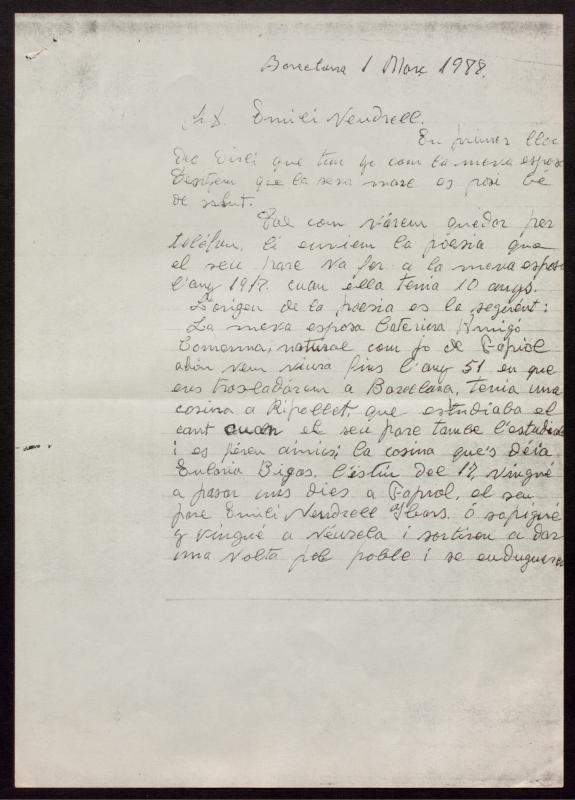 Barcelona 1 Març 1988.
Sr. D. Emili Vendrell.
En primer lloc
dec dirli que tan jo com la meva esposa
desitjem que la seva mare es posi bé
de salut.
Tal com várem quedar per
teléfon, li enviem la póesia que
el seu pare va fer a la meva esposa
l'any 1917. cuan élla tenia 10 anys.
L'orígen de la poesia es la següent:
La meva esposa Caterina Amigó
Comenna, natural com jo de Papiol
adón vem viura fins l'any 51 en que
ens trasladárem a Barcelona, tenia una
cosina a Ripollet, que estudiaba el
cant cuan el seu pare tambe l'estudia
i es féren ámics; la cosina que's déia
Eulária Bigas, l'éstiu del 17, vingué
a pasar uns dies a Papiol, el seu
pare Emili Vendrell Ibars, ó sapigué
y vingué a véurela i sortiren a dar
una volta pel poble i se endugueren